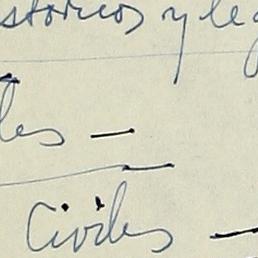 stóricos y le
les —
Civiles —